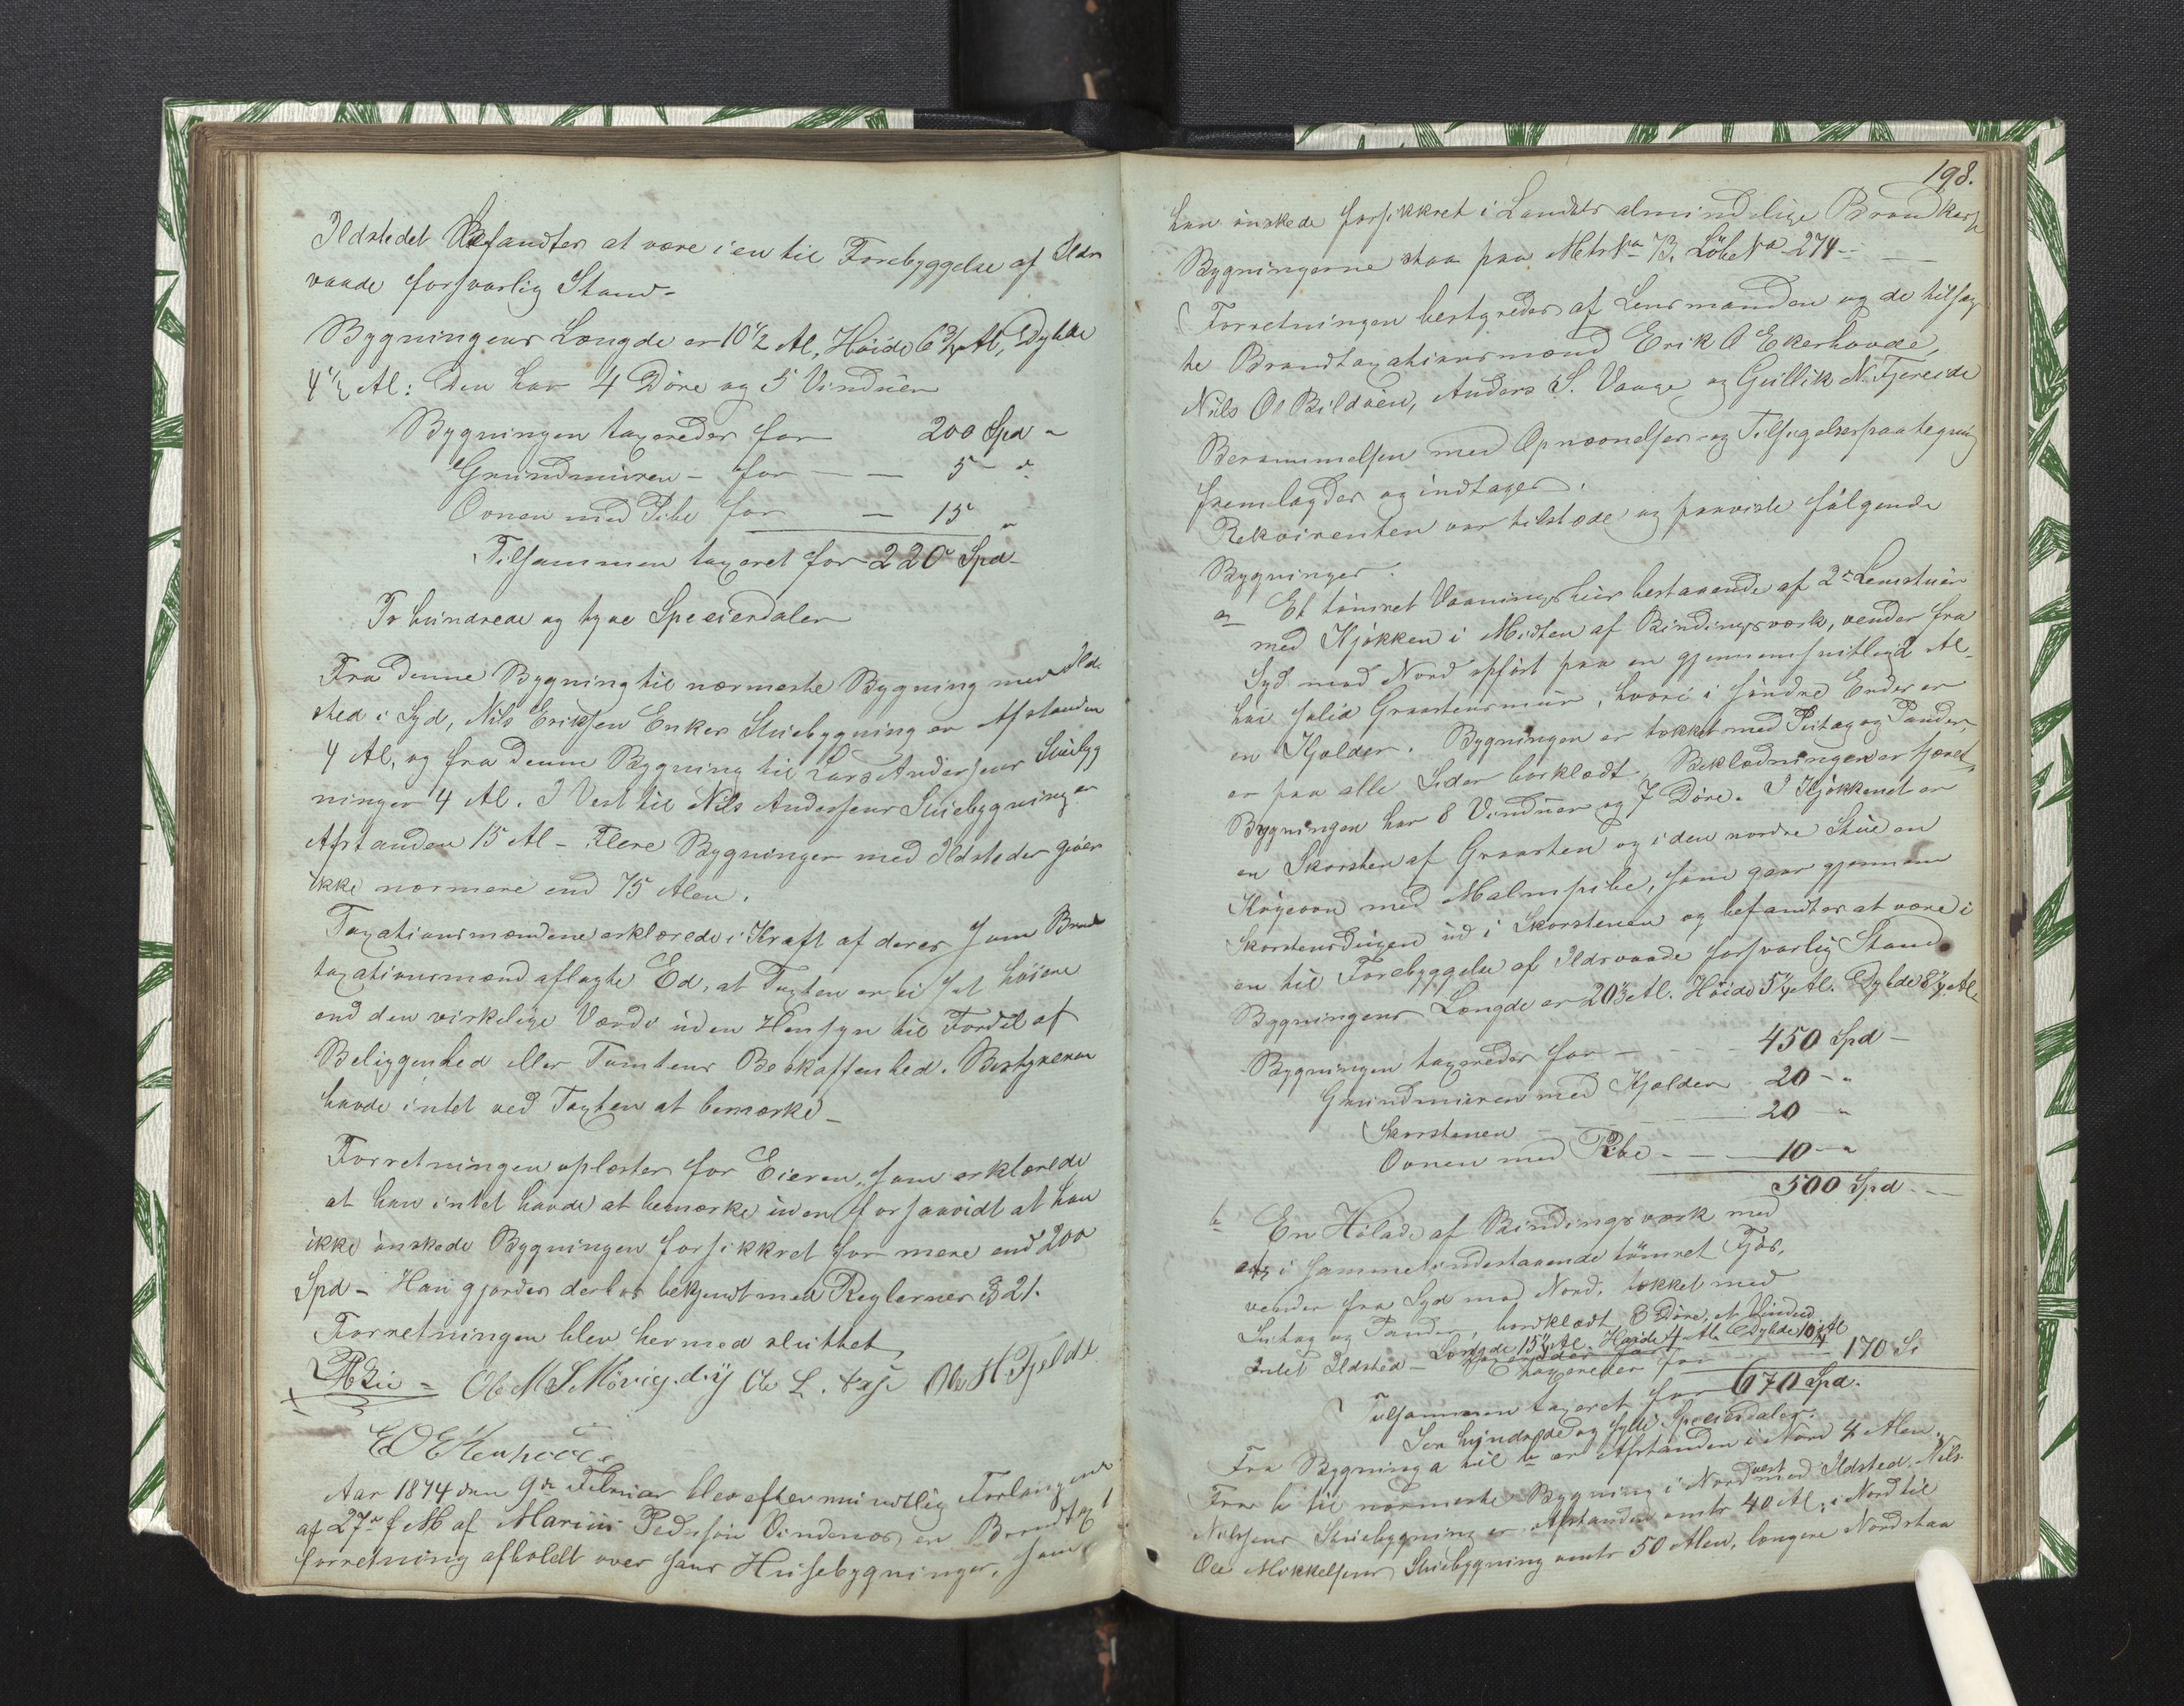 Ildstedet Befandtes at være i en til Forebyggelse af Ilds
vaade forsvarlig Stand -
Bygningens Længde er 10 1/2 Al, Høide 6 3/4 Al, Dybde
4 1/2 Al: Den har 4 Døre og 5 Vinduer
Bygningen taxeredes for 200 Spd -
Grundmuren - for - - 5 - "
Ovnen med Pibe for - 15 "
Tilsammen taxeret for 220 Spd -
To hundrede og tyve Speciedaler
Fra denne Bygning til nærmeste Bygning med Ild
sted i Syd, Nils Eriksen Enkes Stuebygning er Afstanden
4 Al, og fra denne Bygning til Lars Andersens Stuebyg
ninger 4 Al. I Vest til Nils Andersens Stuebygning er
Afstanden 15 Al - Flere Bygninger med Ildsteder gives
ikke nærmere end 75 Alen.
Taxationsmændene erklærede i Kraft af deres som Brand
taxationsmænd aflagte Ed, at Taxten er ei sat høiere
end den virkelige Værdi uden Hensyn til Fordel af
Beliggenhed eller Tomtens Beskaffenhed. Bestyreren
havde intet ved Taxten at bemærke -
Forretningen oplæstes for Eieren, som erklærede
at han intet havde at bemærke uden forsaavidt at han
ikke ønskede Bygningen forsikkret for mere end 200
Spd - Han gjordes derhos bekjendt med Reglernes § 21.
Forretningen blev hermed sluttet
Ole M S Møvig. Ole L. Ole H Tjeldt
Aar 1874 den 9de Februar blev efter mundtlig Forlangende
af 27de f M af Marius Pedersen Vindenes en Brandtax
forretning afholdt over hans Husebygninger, som
198.
han ønskede forsikkret i Landets almindelige Brandkasse
Bygningerne staa paa Matr No 73. Løbe No 274 -
Forretningen bestyredes af Lensmanden og de tilsag
te Brandtaxationsmænd Erik O Ekerhovde,
Nils Ol Bildøen, Anders S. Vaage og Gullik N. Fjereide
Berammelsen med Opnævnelses - og Tilsigelsespaategning
fremlagdes og indtages.
Rekvirenten var tilstede og paaviste følgende
Bygninger.
a Et tømret Vaaningshus bestaaende af 2de Lemstuer
med Kjøkken i Midten af Bindingsværk, vender fra
Syd mod Nord opført paa en gjennemsnitlig 2 Al
høi solid Graastensmuur, hvori i søndre Ende er
en Kjelder. Bygningen er tækket med Sutag og Pander,
er paa alle Sider bordklædt. Beklædningen er tjæret,
Bygningen har 8 Vinduer og 7 Døre. I Kjøkkenet er
en Skorsten af Graasten og i den nordre Stue en
Kogeovn med Malmpibe, som gaar gjennem
Skorstensdingen ud i Skorstenen og befandtes at være i
en til Forebyggelse af Ildsvaade forsvarlig Stand
Bygningens Længde er 20 1/2 Al. Høide 5 1/4 Al. Dybde 8 1/4 Al.
Bygningen taxeredes for - - - 450 Spd -
Grundmuren med Kjelder 20 - "
Skorstenen - - - 20 "
Ovnen med Pibe - - - 10 - "
500 Spd -
b En Hølade af Bindingsværk med
et i samme indestaaende tømret Fjøs,
vender fra Syd mod Nord, tækket med
Sutag og Pander, bordklædt 8 Døre, et Vindue
intet Ildsted - Længde 15 1/4 Al. Høide 4 Al. Dybde 10 1/4 Al
taxeredes for - - 170 S
Tilsammen taxeret for 670 Spd.
Sex hundrede og sytti Speciedaler.
Fra Bygning a til b er Afstanden i Nord 4 Alen.
Fra b til nærmeste Bygning i Nordvest med Ildsted. Nils
Nielsens Stuebygning er Afstanden omtr 40 Al, i Nord til
Ole Mikkelsens Stuebygning omtr 50 Alen, længere Nord staa